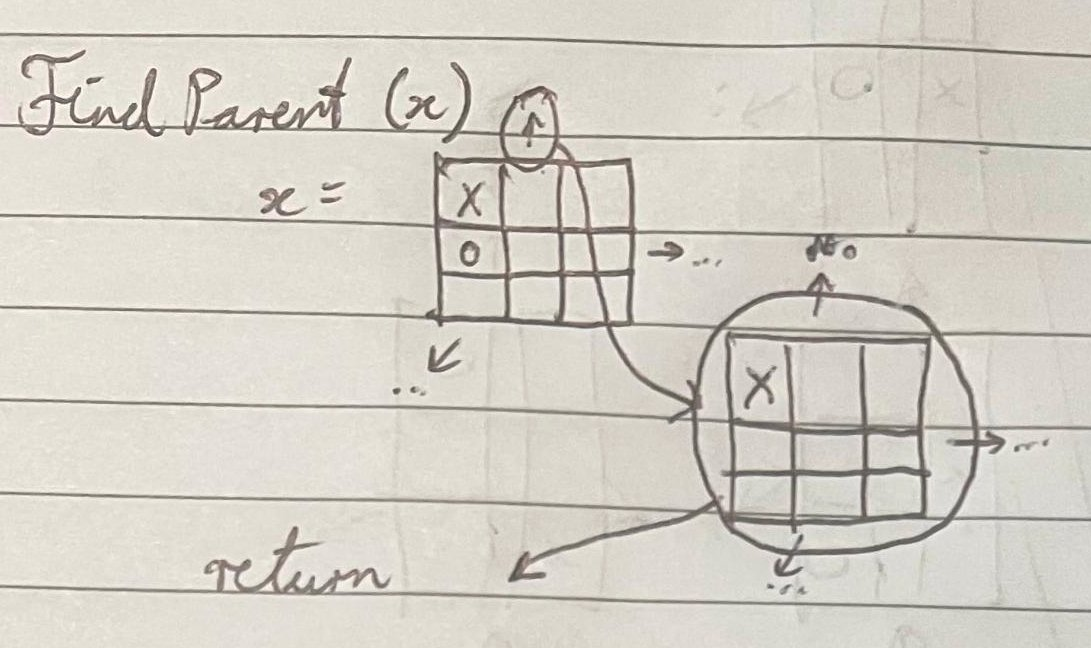 Find Parent (x)
↑
x =
X
O
→ ...
↙
...
↑
X
→ ...
↙
...
return